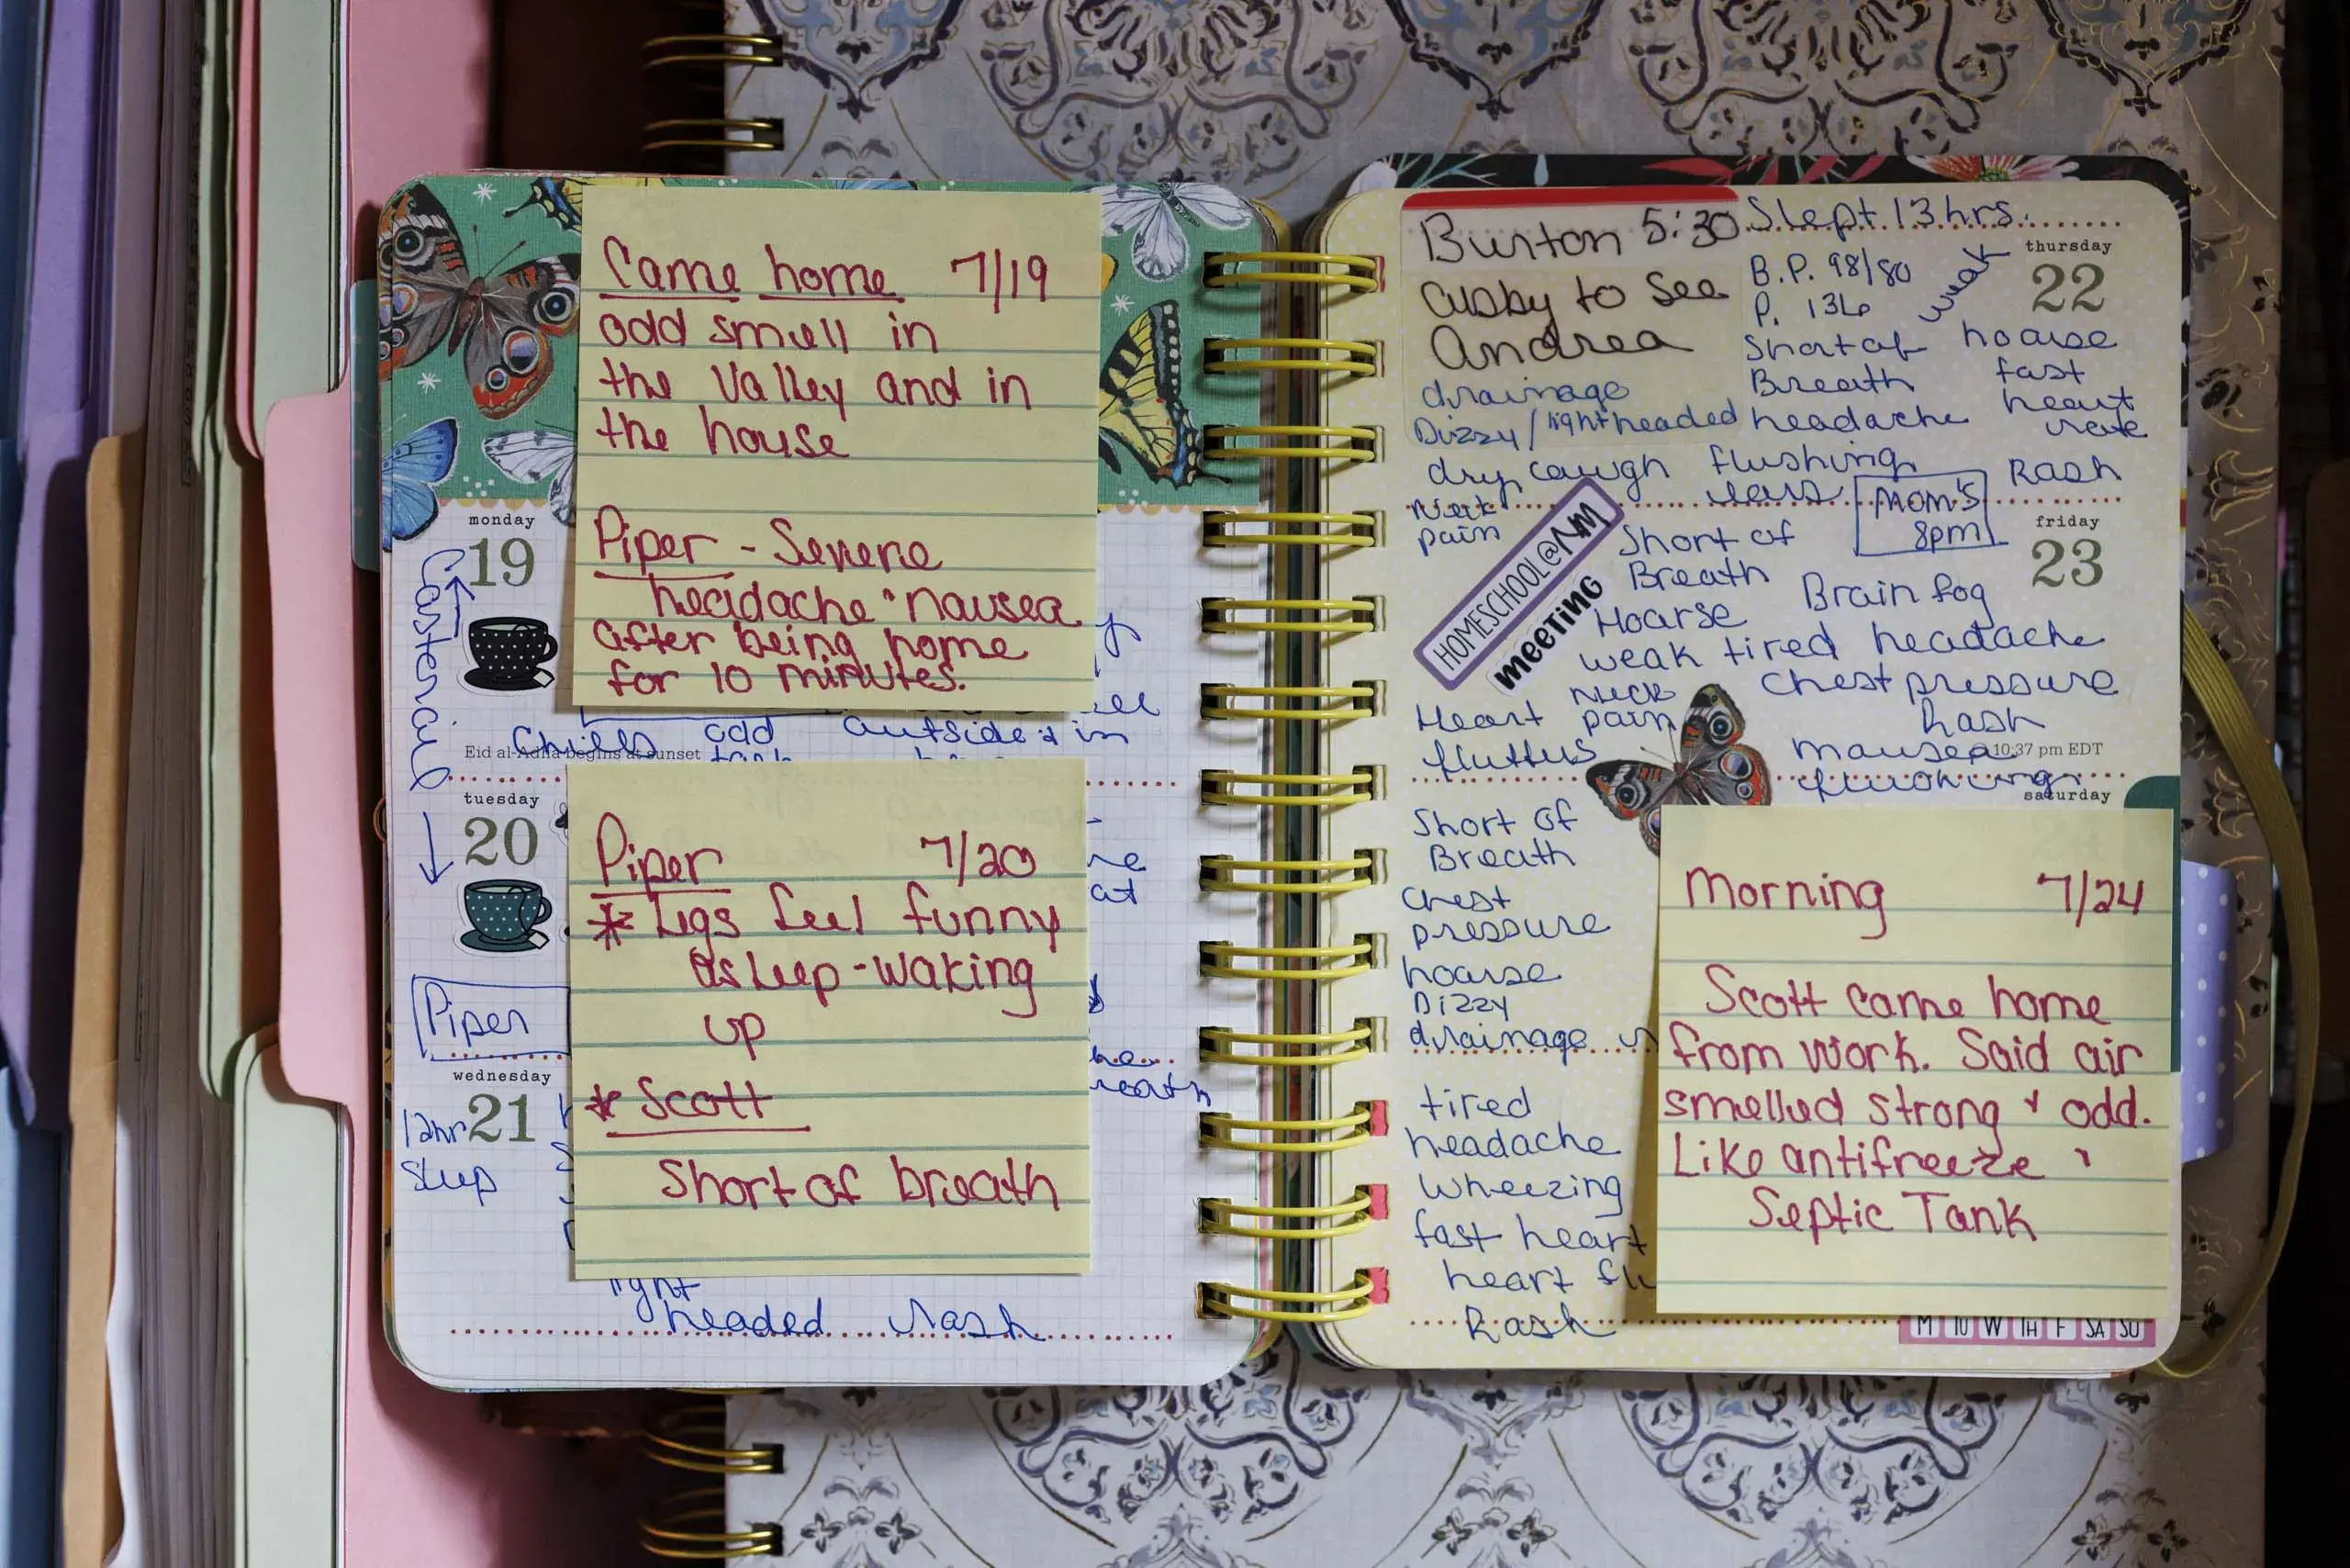 Came home 7/19
odd smell in
the valley and in
the house
Piper - Severe
headache + nausea
after being home
for 10 minutes.
monday
19
Castercail
Chills odd outside + in
Eid al-Adha begins at sunset
tuesday
20
Piper 7/20
* Legs feel funny
asleep - waking
up
* Scott
Short of breath
at
Piper
wednesday
21
12hr
sleep
light
headed rash
Burton 5:30
Cusby to see
Andrea
Slept 13 hrs.
thursday
22
B.P. 98/80
P. 136
weak
Short of
Breath
headache
hoarse
fast
heart
rate
Rash
drainage
Dizzy/lightheaded
dry cough flushing
ears
MOM'S
8pm
friday
23
Neck
pain
HOMESCHOOL@NM
MEETING
Short of
Breath
Brain fog
Hoarse
weak tired headache
neck
pain
chest pressure
Rash
Heart
flutters
nausea
10:37 pm EDT
flushing
saturday
Short of
Breath
chest
pressure
hoarse
Dizzy
drainage
Morning 7/24
Scott came home
from work. Said air
smelled strong + odd.
Like antifreeze +
Septic Tank
tired
headache
wheezing
fast heart
heart
Rash
M TU W TH F SA SU